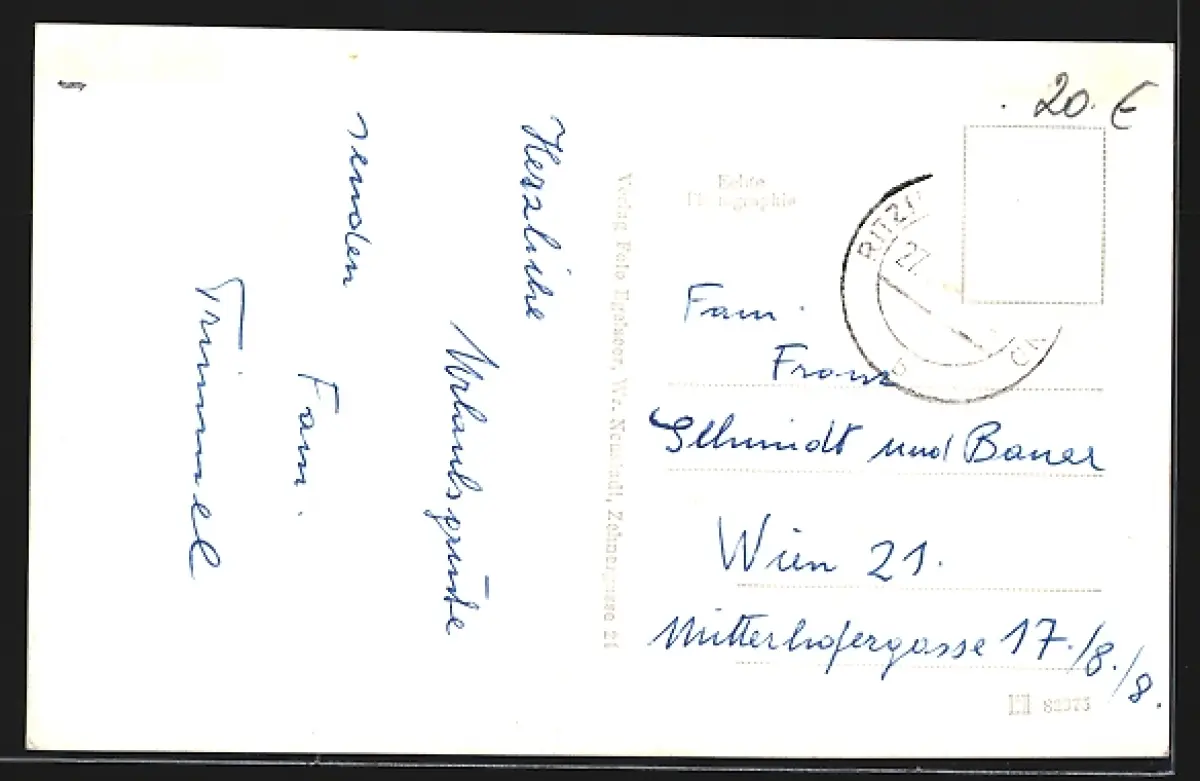 Herzliche
Urlaubsgrüße
senden
Fam.
Trimmel
Verlag Foto
Wr. Neustadt, Zehnergasse 21
Echte
Photographie
20. €
RITZI
27.
Fam.
Franz
Schmidt und Bauer
Wien 21.
Mitterhofergasse 17./8./8.